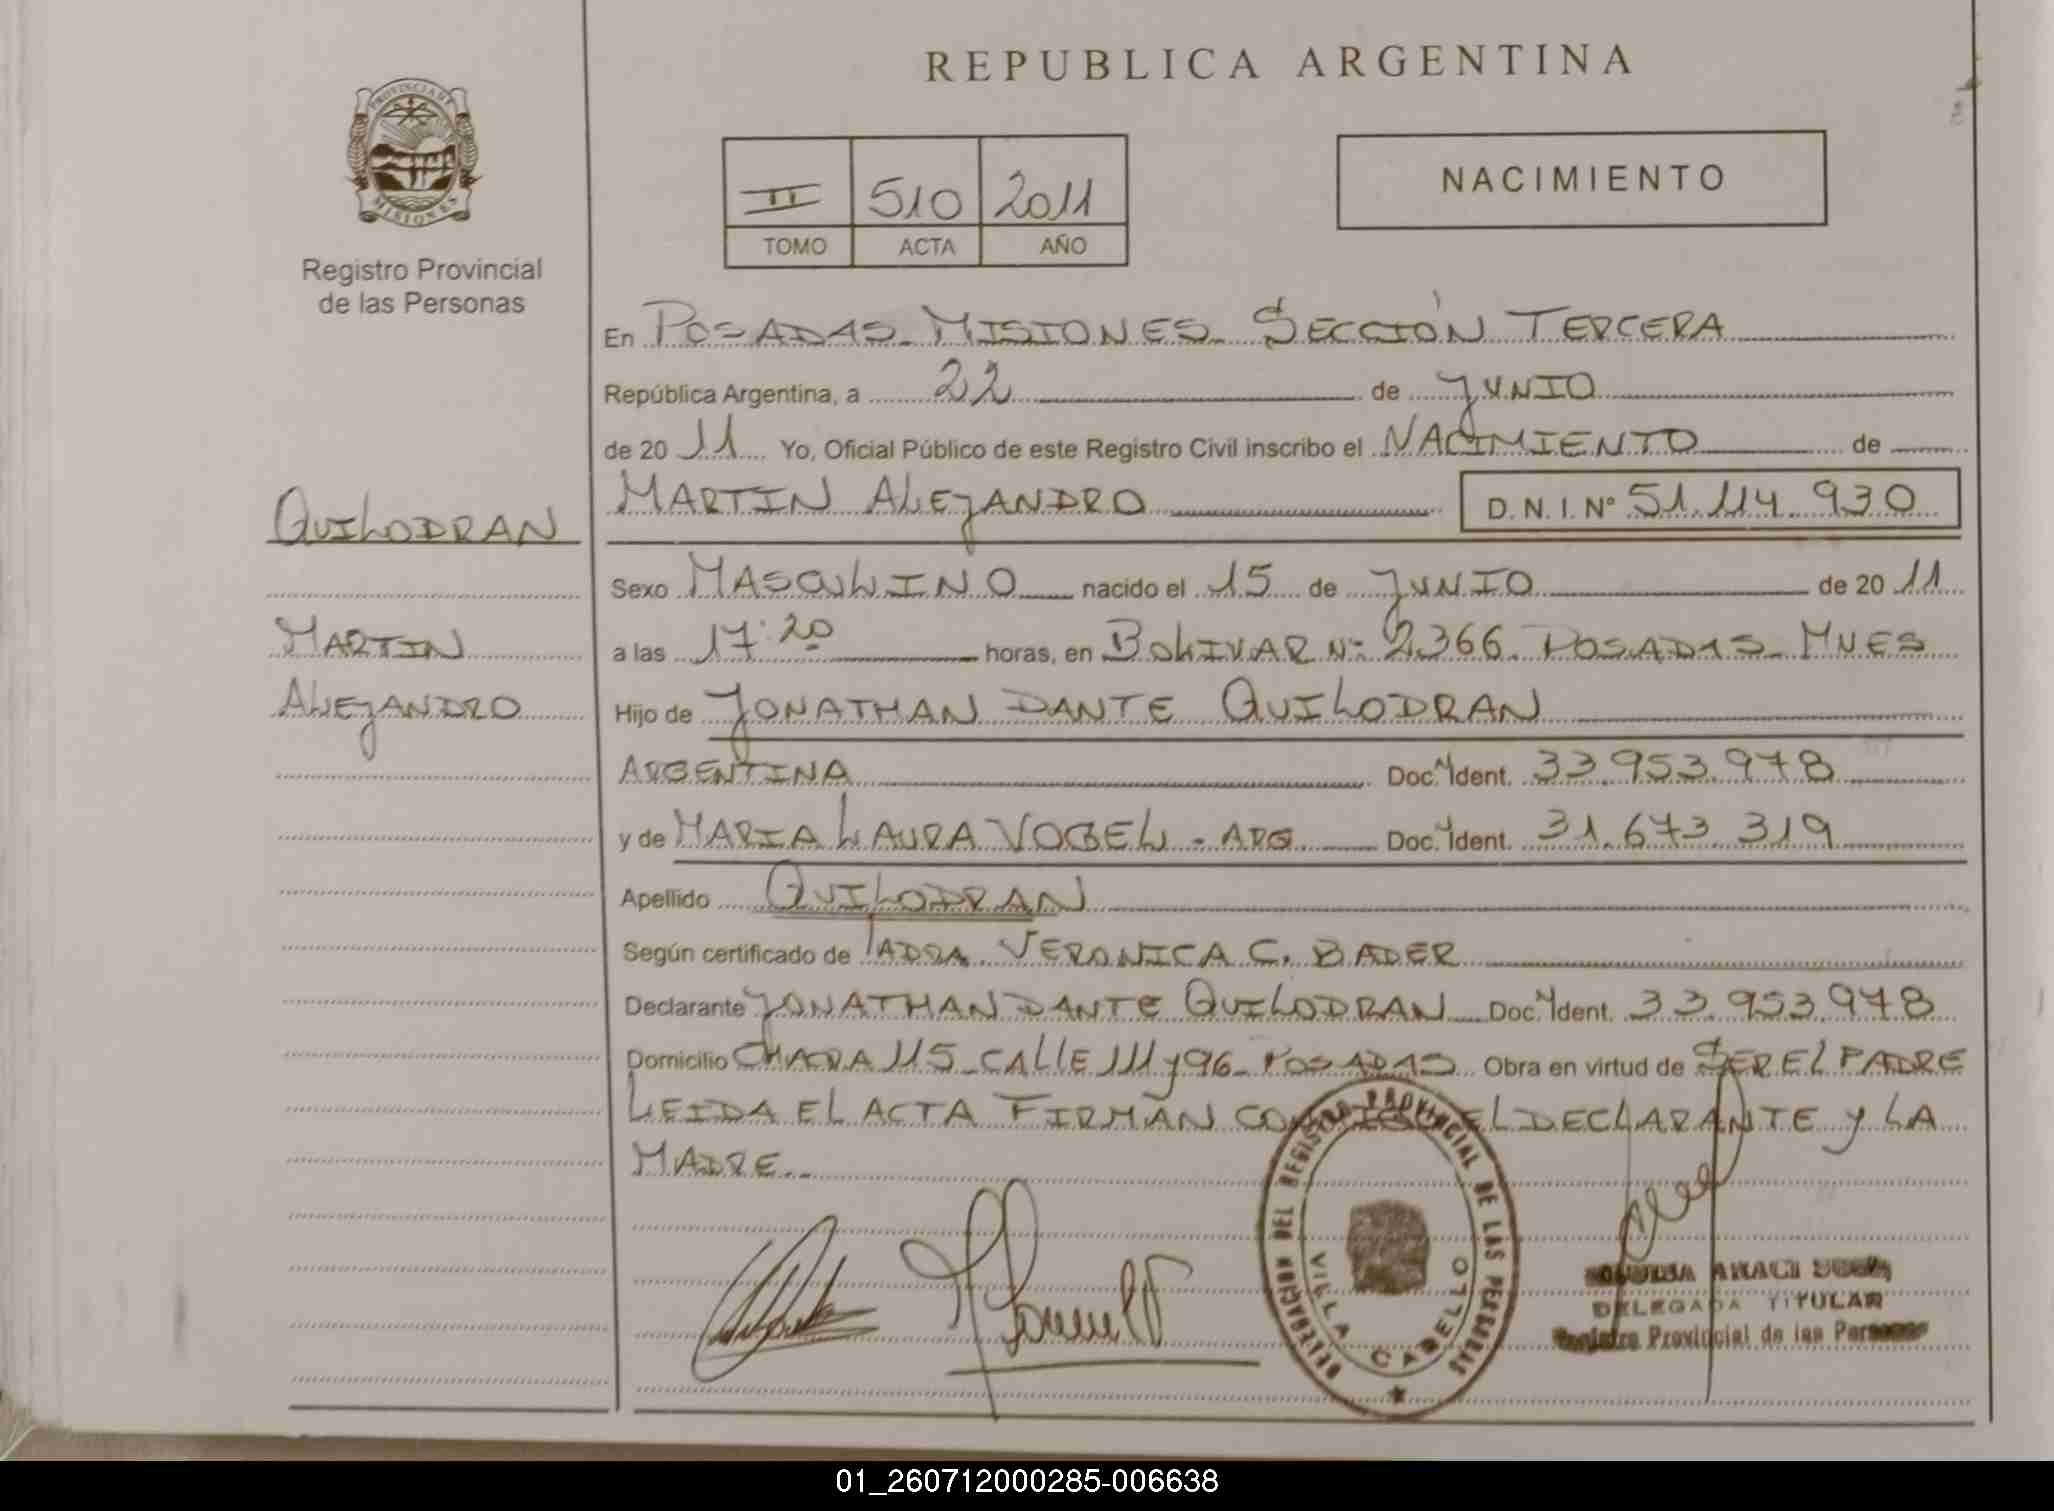 REPUBLICA ARGENTINA
PROVINCIA DE
MISIONES
Registro Provincial
de las Personas
II 510 2011
TOMO ACTA AÑO
NACIMIENTO
En POSADAS - MISIONES - SECCIÓN TERCERA
República Argentina, a 22 de JUNIO
de 20 11 Yo, Oficial Público de este Registro Civil inscribo el NACIMIENTO de
QUILODRAN
MARTIN ALEJANDRO D.N.I. Nº 51.114.930
Sexo MASCULINO nacido el 15 de JUNIO de 20 11
MARTIN
a las 17:20 horas, en BOLIVAR Nº 2366. POSADAS - MNES
ALEJANDRO
Hijo de JONATHAN DANTE QUILODRAN
ARGENTINA Doc. Ident. 33.953.978
y de MARIA LAURA VOGEL - ARG Doc. Ident. 31.673.319
Apellido QUILODRAN
Según certificado de VERONICA C. BADER
Declarante JONATHAN DANTE QUILODRAN Doc. Ident. 33.953.978
Domicilio CHACRA 115 - CALLE 111 y 96 - POSADAS Obra en virtud de SER EL PADRE
LEIDA EL ACTA FIRMAN CONMIGO EL DECLARANTE Y LA
MADRE.
DELEGACION DEL REGISTRO PROVINCIAL DE LAS PERSONAS
VILLA CABELLO
DELEGADA TITULAR
Registro Provincial de las Personas
01_260712000285-006638